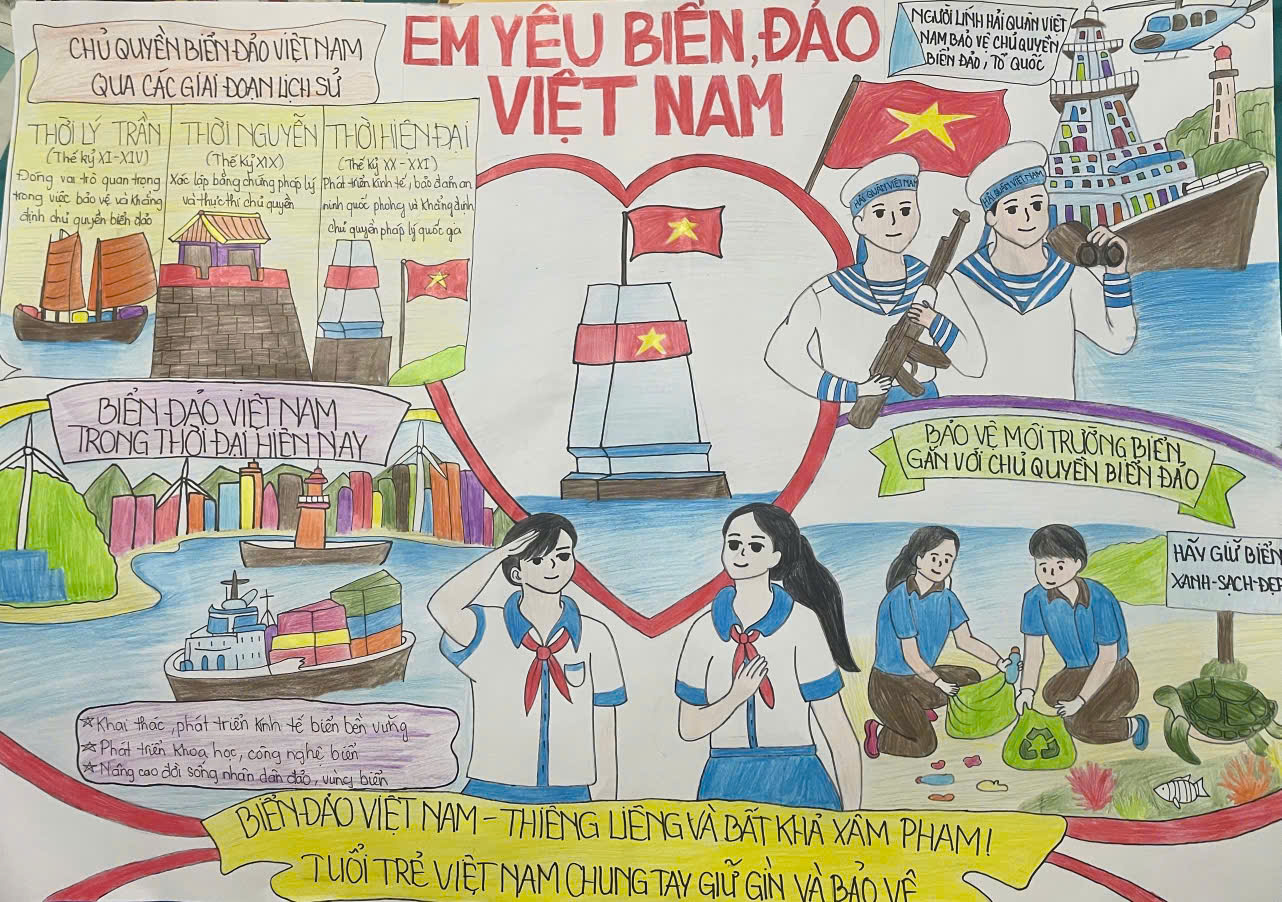 EM YÊU BIỂN, ĐẢO
VIỆT NAM
CHỦ QUYỀN BIỂN ĐẢO VIỆT NAM
QUA CÁC GIAI ĐOẠN LỊCH SỬ
THỜI LÝ TRẦN
(Thế kỷ XI-XIV)
Đóng vai trò quan trọng
trong việc bảo vệ và khẳng
định chủ quyền biển đảo
THỜI NGUYỄN
(Thế kỷ XIX)
Xác lập bằng chứng pháp lý
và thực thi chủ quyền
THỜI HIỆN ĐẠI
(Thế kỷ XX-XXI)
Phát triển kinh tế, bảo đảm an
ninh quốc phòng và khẳng định
chủ quyền pháp lý quốc ga
NGƯỜI LÍNH HẢI QUÂN VIỆT
NAM BẢO VỆ CHỦ QUYỀN
BIỂN ĐẢO, TỔ QUỐC
HẢI QUÂN VIỆT NAM
HẢI QUÂN VIỆT NAM
BIỂN ĐẢO VIỆT NAM
TRONG THỜI ĐẠI HIỆN NAY
☆Khai thác, phát triển kinh tế biển bền vững
☆Phát triển khoa học, công nghệ biển
☆Nâng cao đời sống nhân dân đảo, vùng biển
BẢO VỆ MÔI TRƯỜNG BIỂN
GẮN VỚI CHỦ QUYỀN BIỂN ĐẢO
HÃY GIỮ BIỂN
XANH-SẠCH-ĐẸP
BIỂN ĐẢO VIỆT NAM - THIÊNG LIÊNG VÀ BẤT KHẢ XÂM PHẠM!
TUỔI TRẺ VIỆT NAM CHUNG TAY GIỮ GÌN VÀ BẢO VỆ